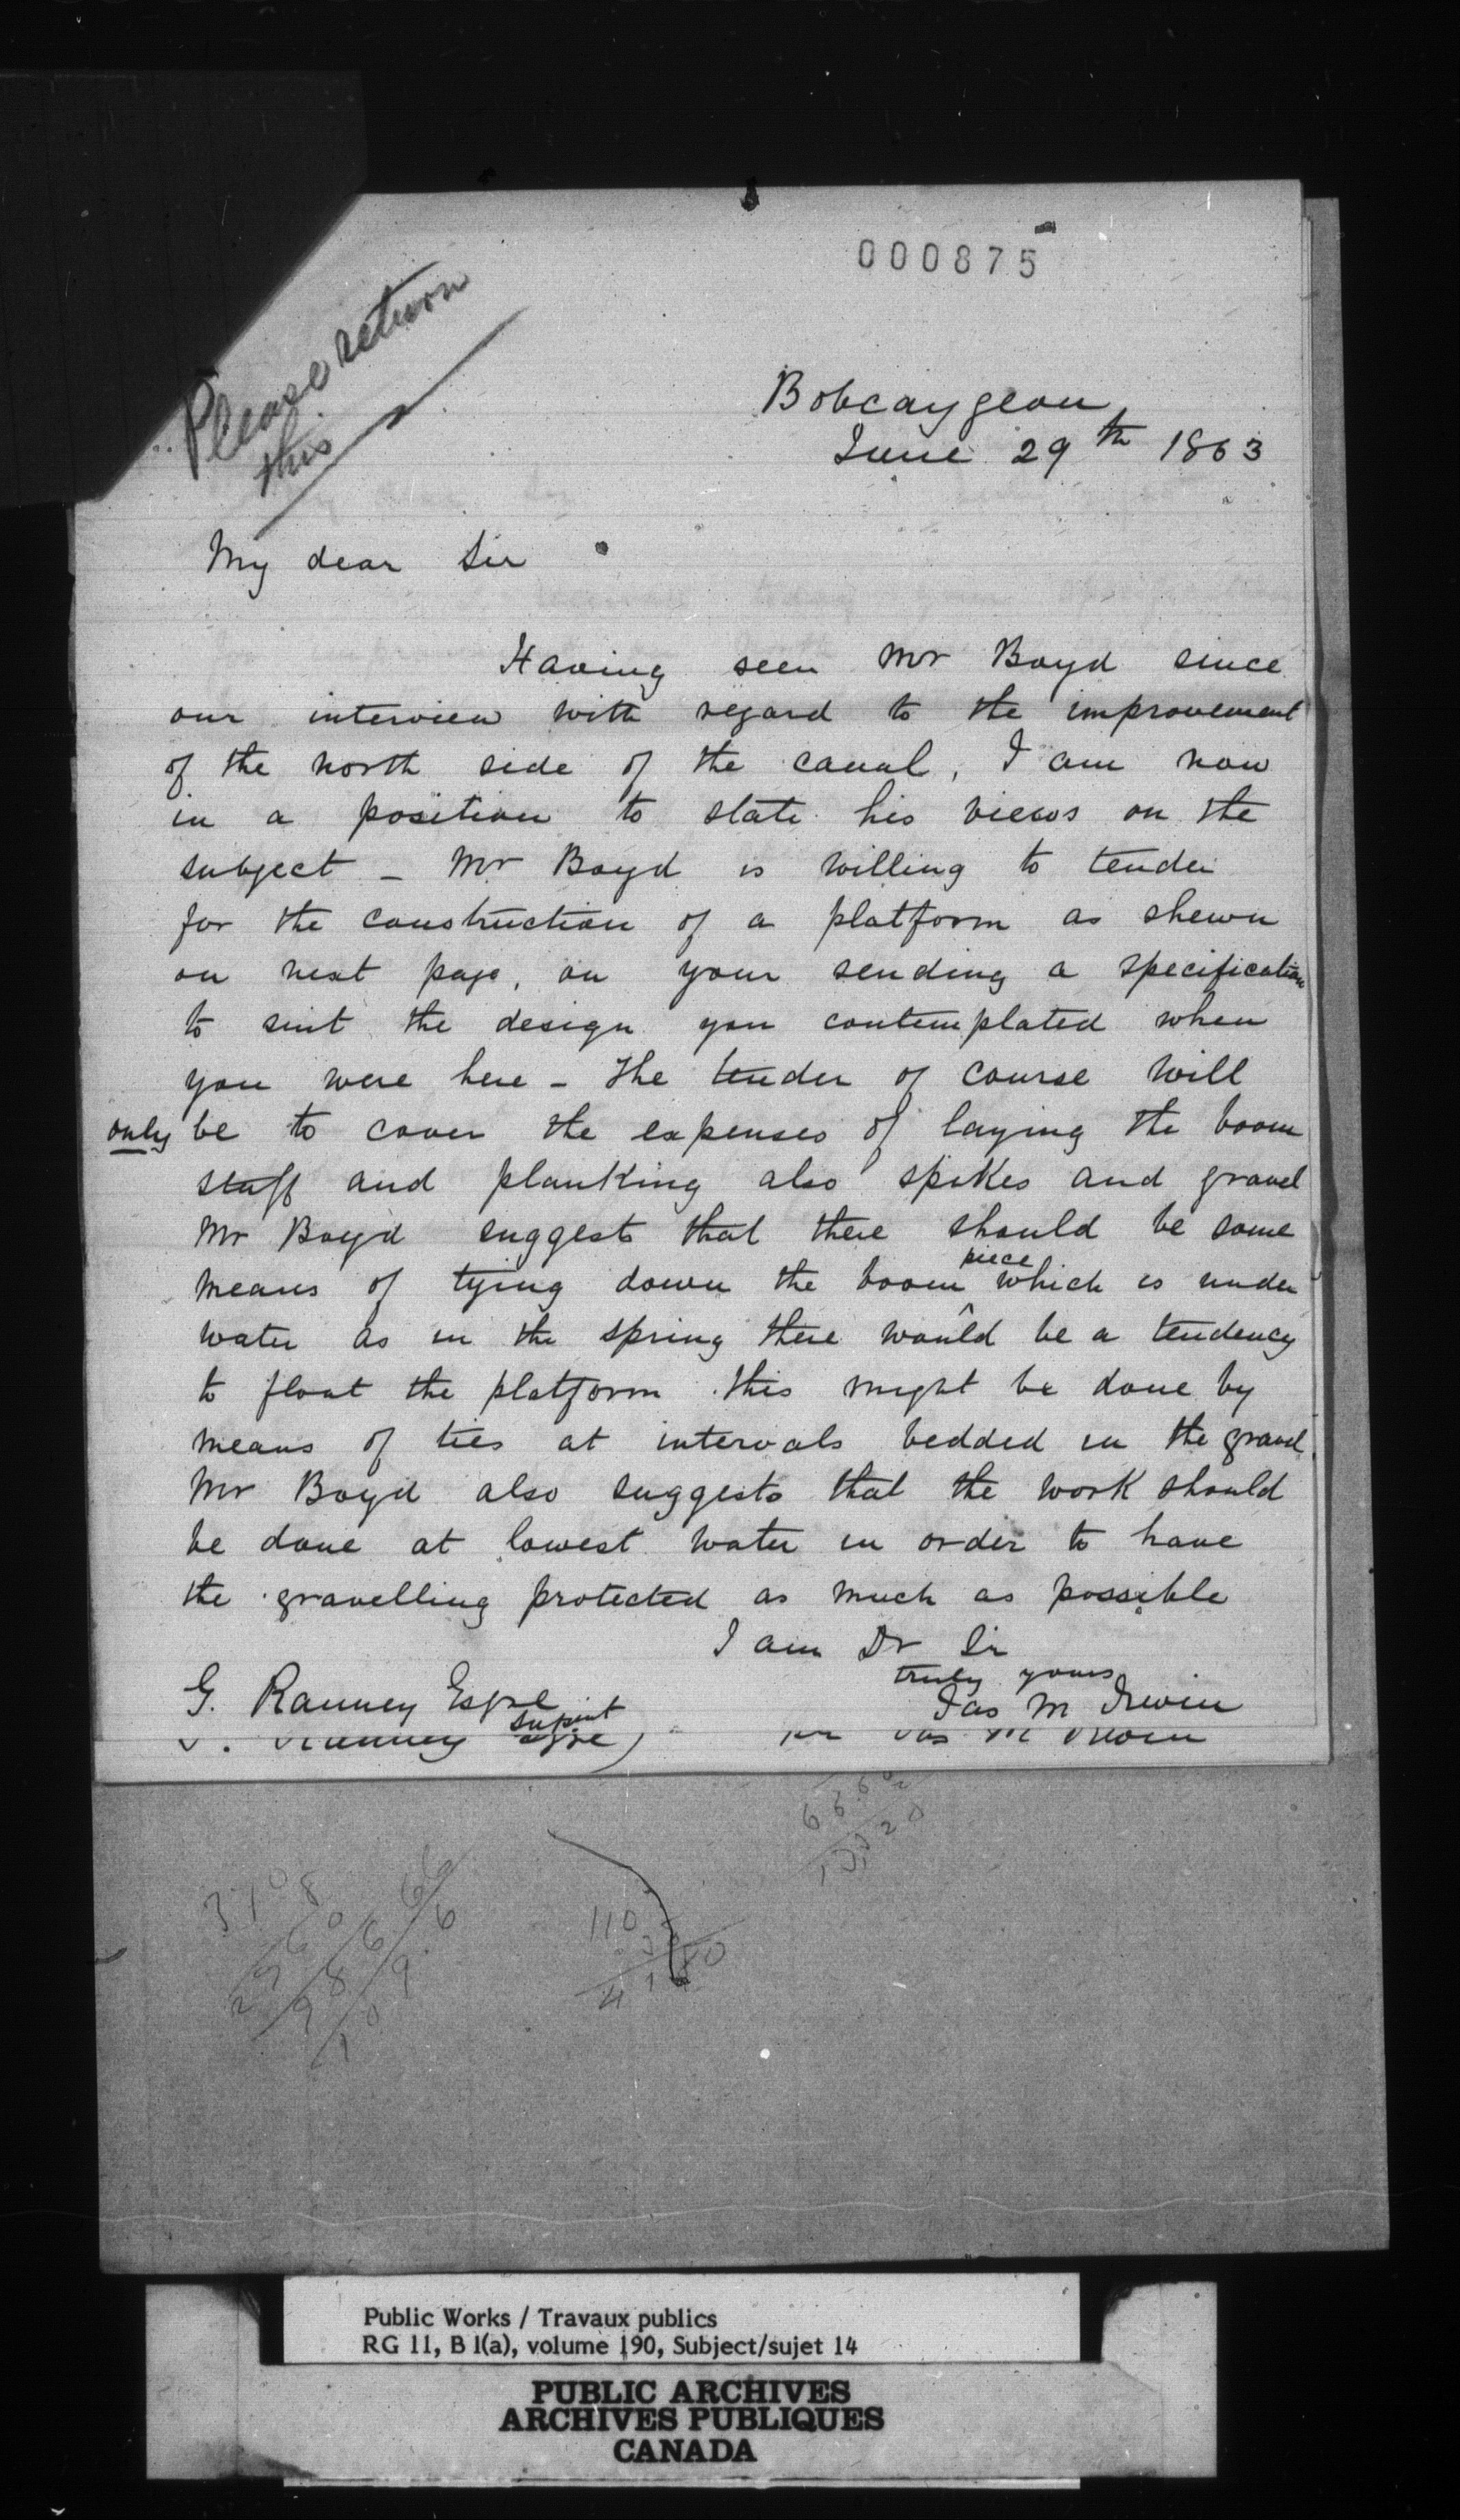 000875
Please return
this
Bobcaygeon
June 29th 1863
My dear Sir
Having seen Mr Boyd since
our interview with regard to the improvement
of the north side of the canal, I am now
in a position to state his views on the
subject - Mr Boyd is willing to tender
for the construction of a platform as shewn
on next page, on your sending a specification
to suit the design you contemplated when
you were here - The tender of course will
only be to cover the expenses of laying the boom
stuff and planking also spikes and gravel
Mr Boyd suggests that there should be some
means of tying down the boom piece which is under
water as in the spring there would be a tendency
to float the platform. this might be done by
means of ties at intervals bedded in the gravel.
Mr Boyd also suggests that the work should
be done at lowest water in order to have
the gravelling protected as much as possible
I am Dr Sir
truly yours
G. Ranney Esqre
Supint
Jas M Irwin
110
Public Works / Travaux publics
RG 11, B 1(a), volume 190, Subject/sujet 14
PUBLIC ARCHIVES
ARCHIVES PUBLIQUES
CANADA